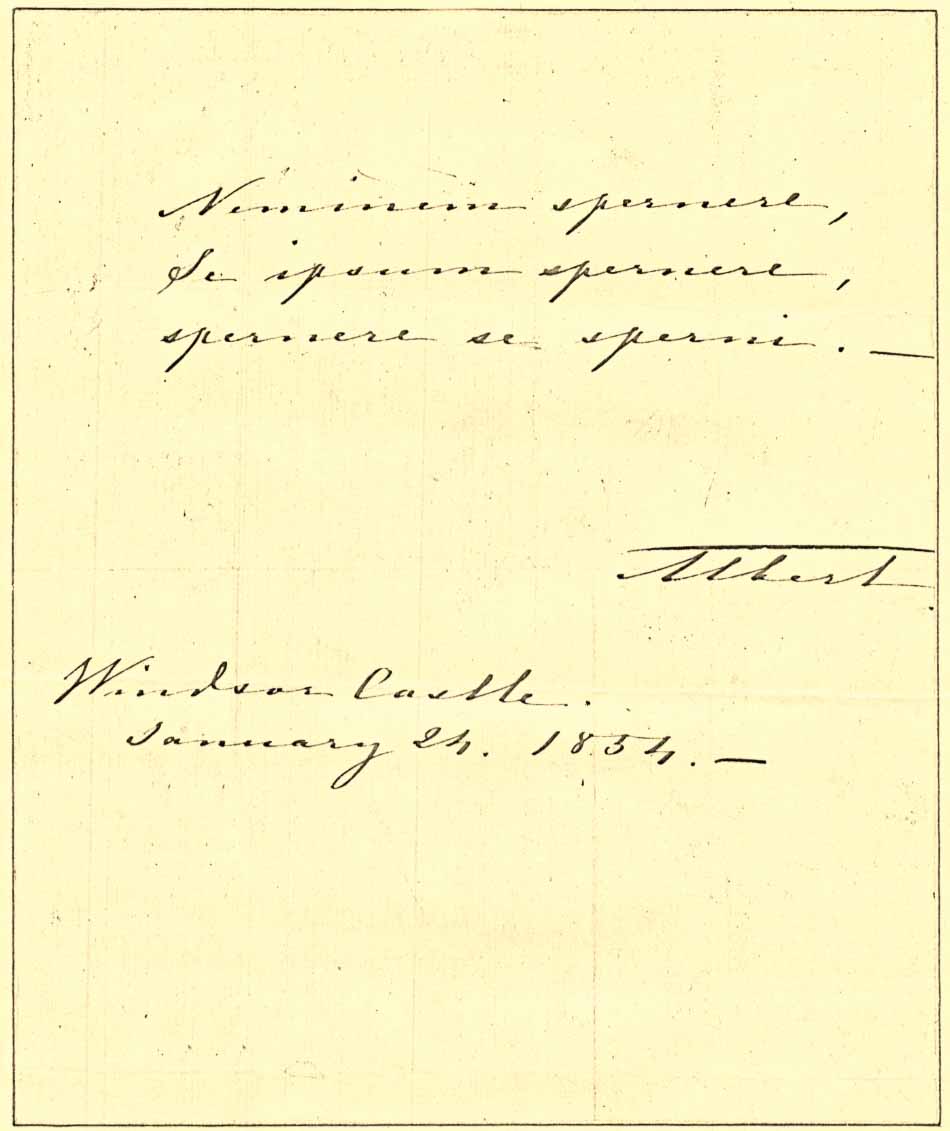 Neminem spernere,
Se ipsum spernere,
spernere se sperni. —
Albert
Windsor Castle.
January 24. 1854. —